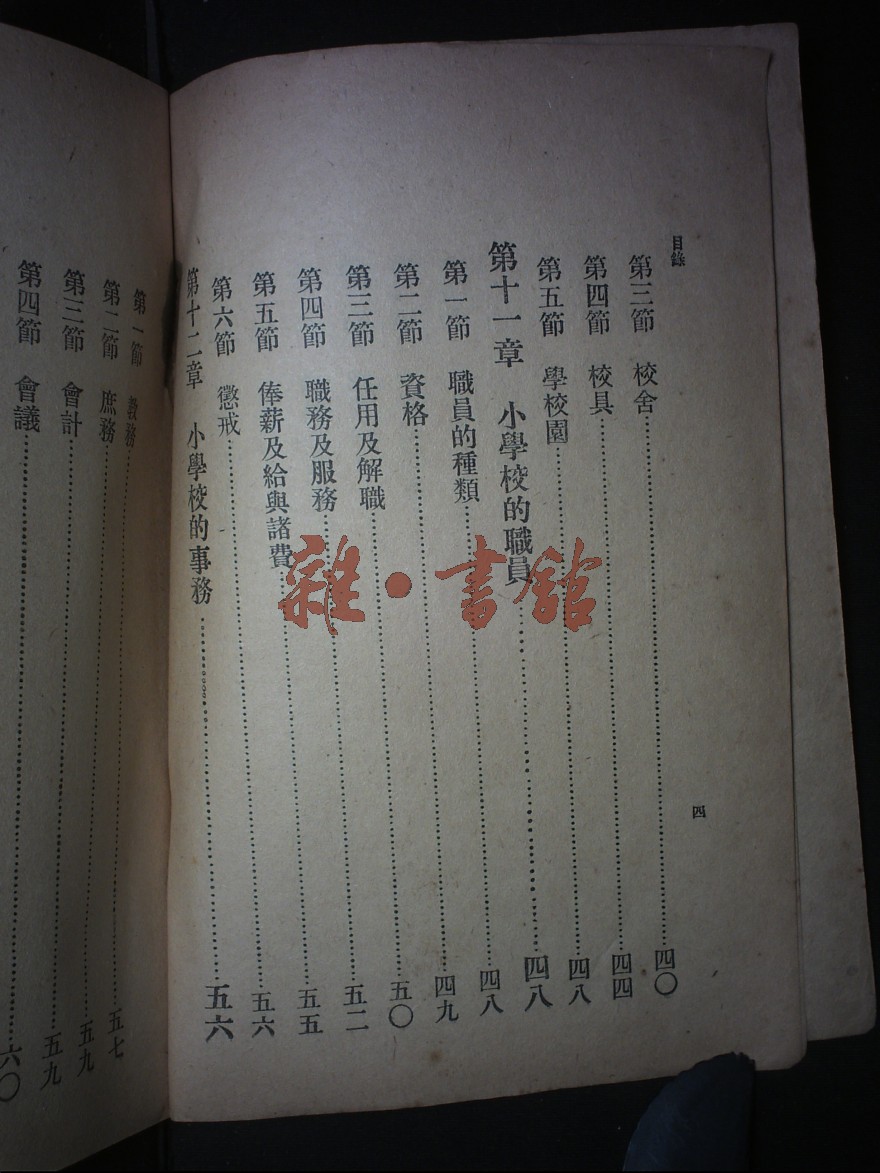 目錄
四
第三節 校舍……四〇
第四節 校具……四四
第五節 學校園……四八
第十一章 小學校的職員……四八
第一節 職員的種類……四八
第二節 資格……四九
第三節 任用及解職……五〇
第四節 職務及服務……五二
第五節 俸薪及給與諸費……五五
第六節 懲戒……五六
第十二章 小學校的事務……五六
第一節 教務……五七
第二節 庶務……五九
第三節 會計……五九
第四節 會議……六〇
雜·書館